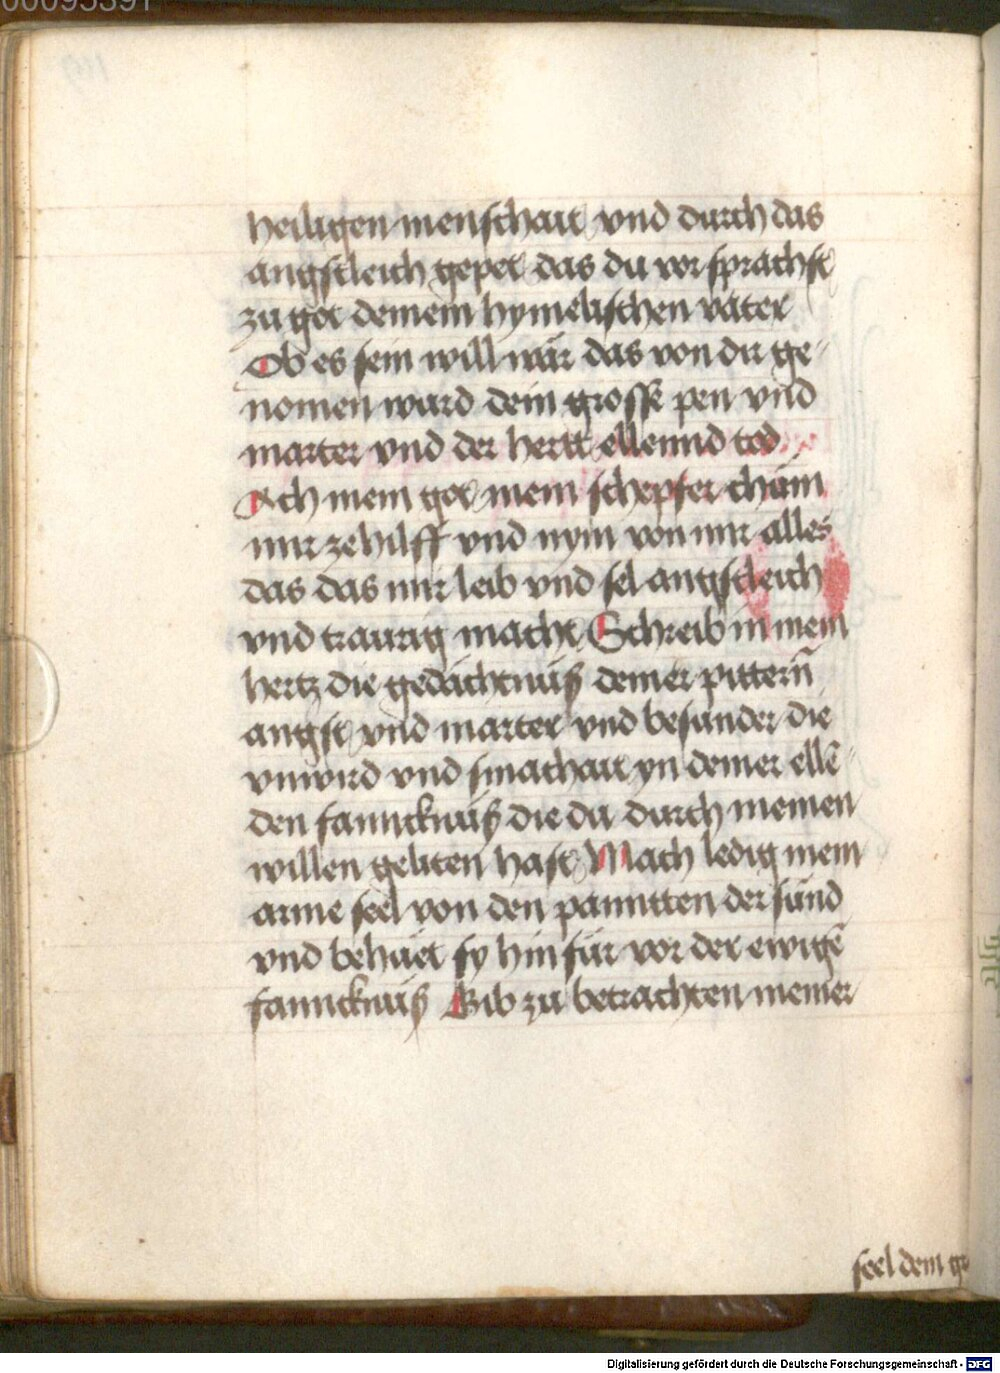 00095391
heiligen menschait vnd durch das
angstleich gepet das du vor sprachst
zu got deinem hymelischen vater
Ob es sein will wär das von dir ge-
nomen ward dein grosse pen vnd
marter vnd der hertt ellennd tod
Ach mein got mein schepfer chüm
mir ze hilff vnd nym von mir alles
das das mir leib vnd sel angstleich
vnd traurig macht Schreib in mein
hertz die gedächtnüß deiner pittern̄
angst vnd marter vnd besunder die
vnwird vnd smachait yn deiner ellē-
den fanncknüß die du durch meinen
willen geliten hast Mach ledig mein
arme seel von den panntten der sünd
vnd behüet sy hin für vor der ewigē
fanncknüß Gib zu betrachten meiner
seel dein
Digitalisierung gefördert durch die Deutsche Forschungsgemeinschaft - DFG